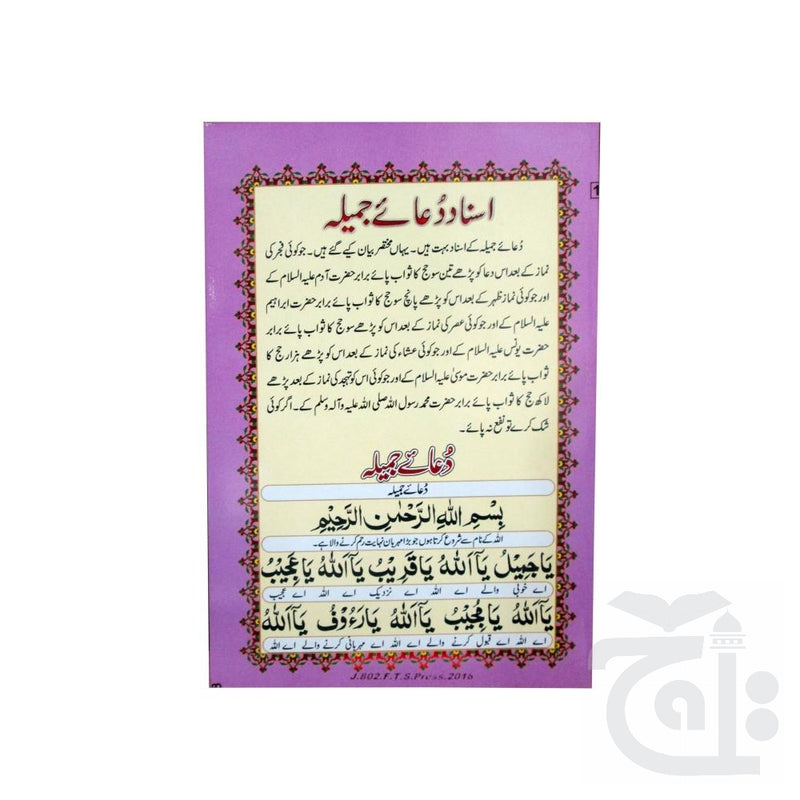 اسناد دُعائے جمیلہ
دُعائے جمیلہ کے اسناد بہت ہیں۔ یہاں مختصر بیان کیے گئے ہیں۔ جو کوئی فجر کی
نماز کے بعد اس دعا کو پڑھے تین سو حج کا ثواب پائے برابر حضرت آدم علیہ السلام کے
اور جو کوئی نماز ظہر کے بعد اس کو پڑھے پانچ سو حج کا ثواب پائے برابر حضرت ابراہیم
علیہ السلام کے اور جو کوئی عصر کی نماز کے بعد اس کو پڑھے سو حج کا ثواب پائے برابر
حضرت یونس علیہ السلام کے اور جو کوئی عشاء کی نماز کے بعد اس کو پڑھے ہزار حج کا
ثواب پائے برابر حضرت موسیٰ علیہ السلام کے اور جو کوئی اس کو تہجد کی نماز کے بعد پڑھے
لاکھ حج کا ثواب پائے برابر حضرت محمد رسول اللہ صلی اللہ علیہ وآلہ وسلم کے۔ اگر کوئی
شک کرے تو نفع نہ پائے۔
دُعائے جمیلہ
دُعائے جمیلہ
بِسْمِ اللهِ الرَّحْمٰنِ الرَّحِيْمِ
اللہ کے نام سے شروع کرتا ہوں جو بڑا مہربان نہایت رحم کرنے والا ہے۔
يَا جَمِيْلُ يَآ اَللهُ يَا قَرِيْبُ يَآ اَللهُ يَا عَجِيْبُ
اے خوبی والے اے اللہ اے نزدیک اے اللہ اے عجیب
يَآ اَللهُ يَا مُجِيْبُ يَآ اَللهُ يَا رَءُوْفُ يَآ اَللهُ
اے اللہ اے قبول کرنے والے اے اللہ اے مہربانی کرنے والے اے اللہ
J.802.F.T.S.Press.2016
1
8
تاج